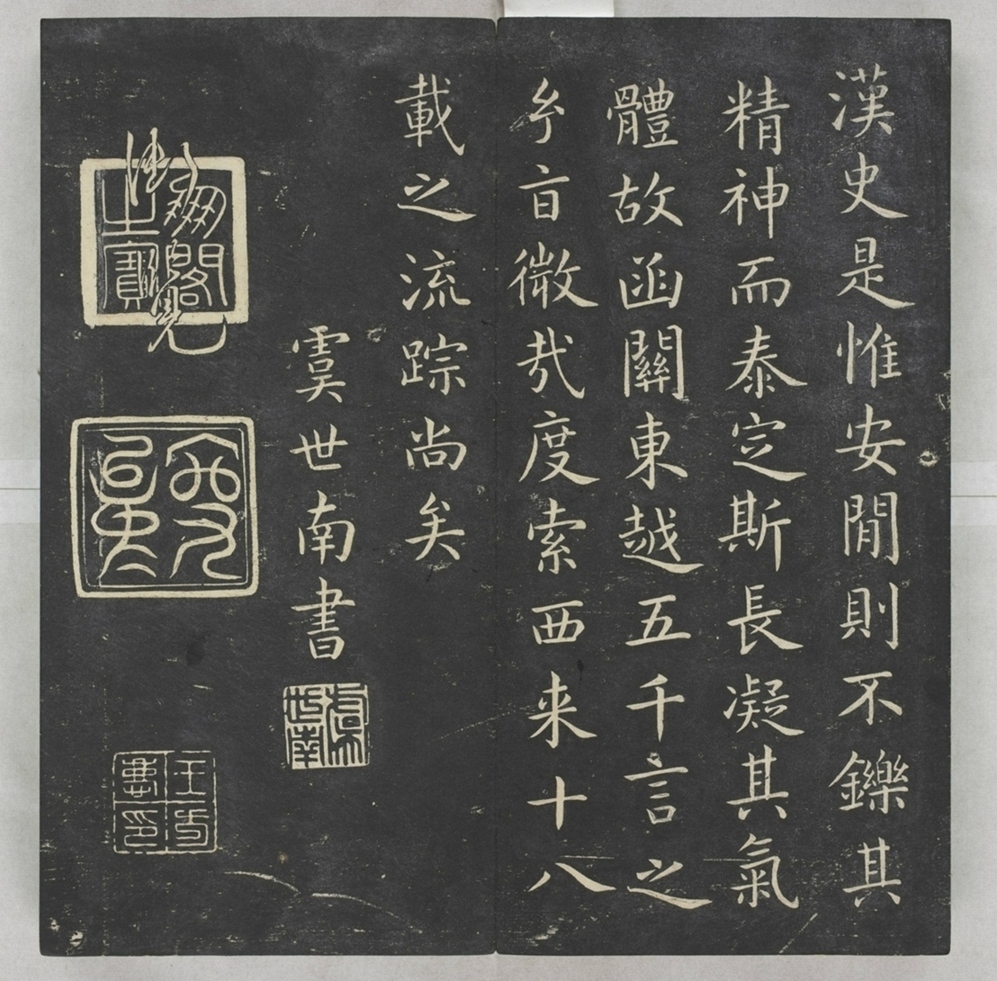 漢史是惟安閒則不鑠其
精神而泰定斯長凝其氣
體故函關東越五千言之
兮盲微㢤度索西来十八
載之流踪尚矣
虞世南書
虞世南
御覽
之寶